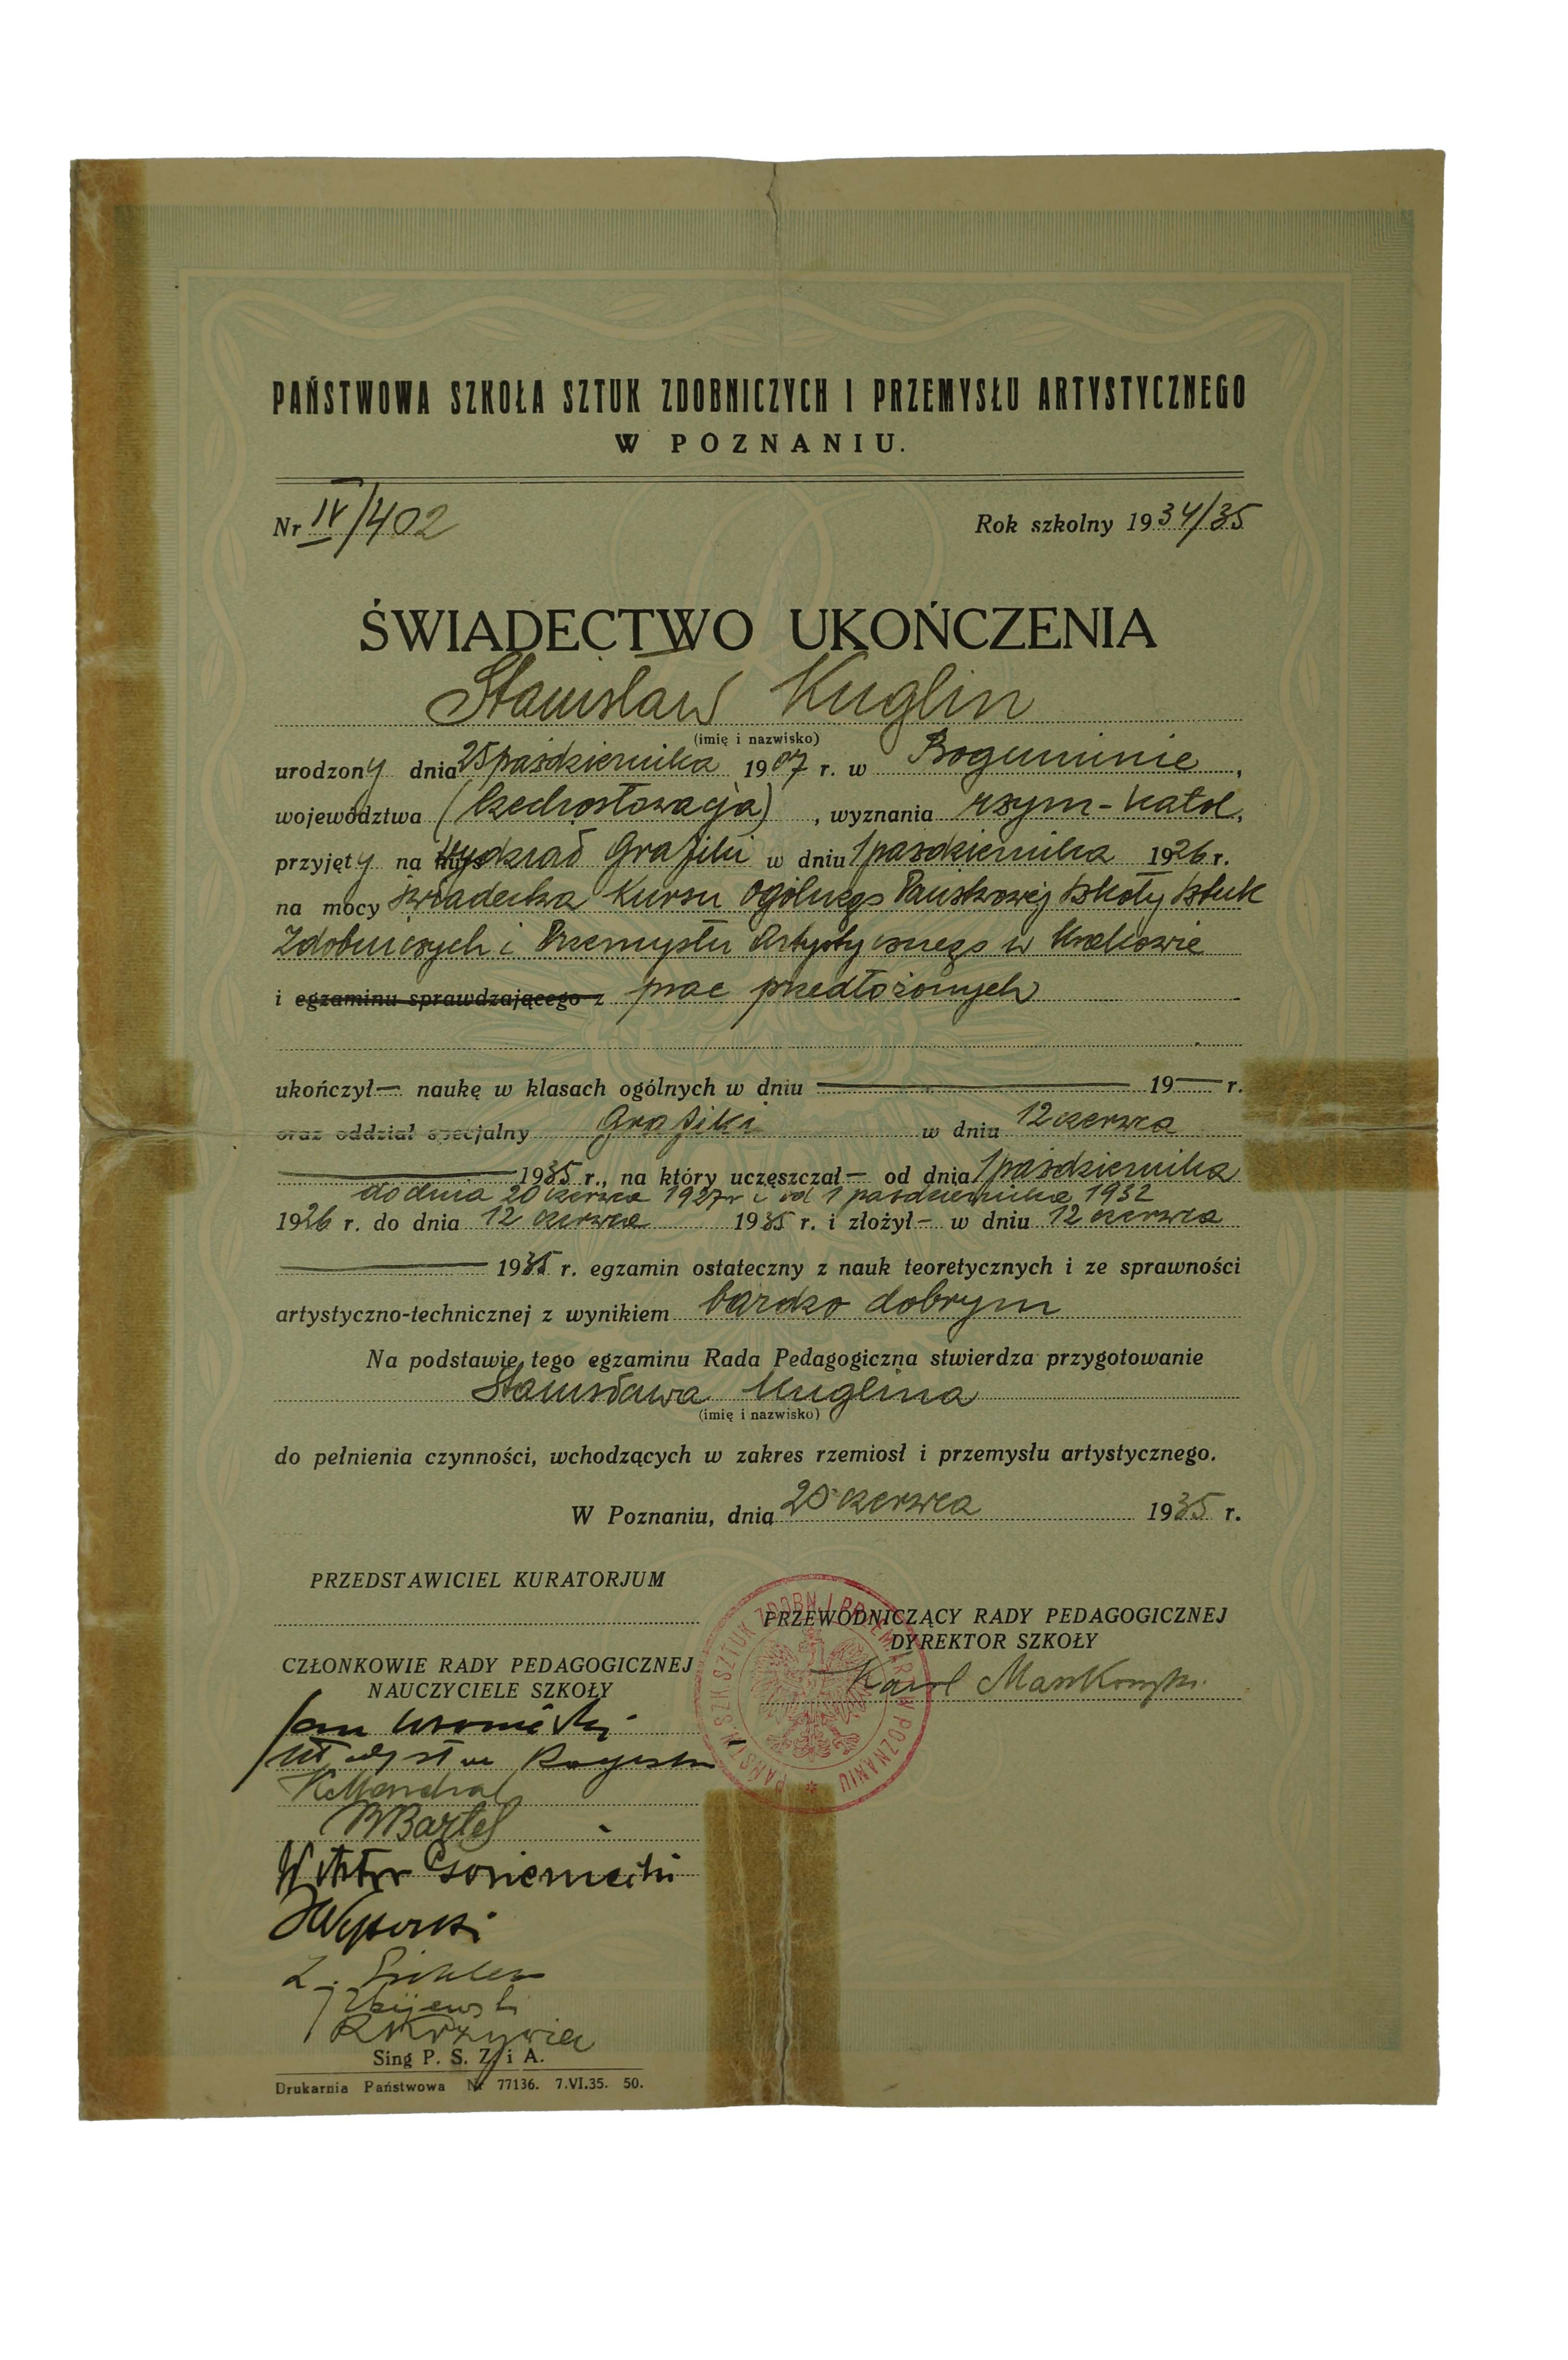 PAŃSTWOWA SZKOŁA SZTUK ZDOBNICZYCH I PRZEMYSŁU ARTYSTYCZNEGO
W POZNANIU.
Nr IV/402 Rok szkolny 1934/35
ŚWIADECTWO UKOŃCZENIA
Stanisław Kuglin
(imię i nazwisko)
urodzony dnia 25 października 1907 r. w Boguminie,
województwa (Czechosłowacja), wyznania rzym-katol,
przyjęty na Wydział Grafiki w dniu 1 października 1926 r.
na mocy świadectwa Kursu Ogólnego Państwowej Szkoły Sztuk
Zdobniczych i Przemysłu Artystycznego w Krakowie
i egzaminu sprawdzającego z prac przedłożonych
ukończył— naukę w klasach ogólnych w dniu — 19— r.
oraz oddział specjalny Grafiki w dniu 12 czerwca
— 1935 r., na który uczęszczał— od dnia 1 października
do dnia 20 czerwca 1927r i od 1 października 1932
1926 r. do dnia 12 czerwca 1935 r. i złożył— w dniu 12 czerwca
— 1935 r. egzamin ostateczny z nauk teoretycznych i ze sprawności
artystyczno-technicznej z wynikiem bardzo dobrym
Na podstawie tego egzaminu Rada Pedagogiczna stwierdza przygotowanie
Stanisława Kuglina
(imię i nazwisko)
do pełnienia czynności, wchodzących w zakres rzemiosł i przemysłu artystycznego.
W Poznaniu, dnia 20 czerwca 1935 r.
PRZEDSTAWICIEL KURATORJUM
PRZEWODNICZĄCY RADY PEDAGOGICZNEJ
DYREKTOR SZKOŁY
Karol Maszkowski
CZŁONKOWIE RADY PEDAGOGICZNEJ
NAUCZYCIELE SZKOŁY
PAŃSTW. SZK. SZTUK ZDOBN. I PRZEM. ART. W POZNANIU
Jan Wroniecki
Władysław
MBartel
Wiktor Gosieniecki
JWysocki
Sing P. S. Z. i A.
Drukarnia Państwowa Nr 77136. 7.VI.35. 50.